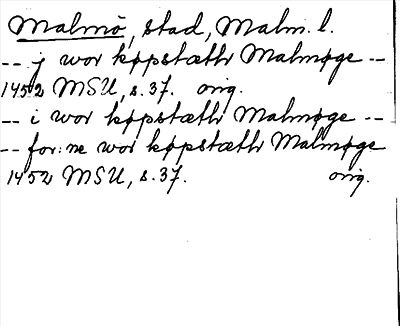 Malmö, stad, Malm. l.
-- j wor køpstæth Malmøge --
1452 MSU, s. 37. orig.
-- i wor køpstæth Malmøge --
-- for:ne wor køpstæth Malmøge
1452 MSU, s. 37. orig.